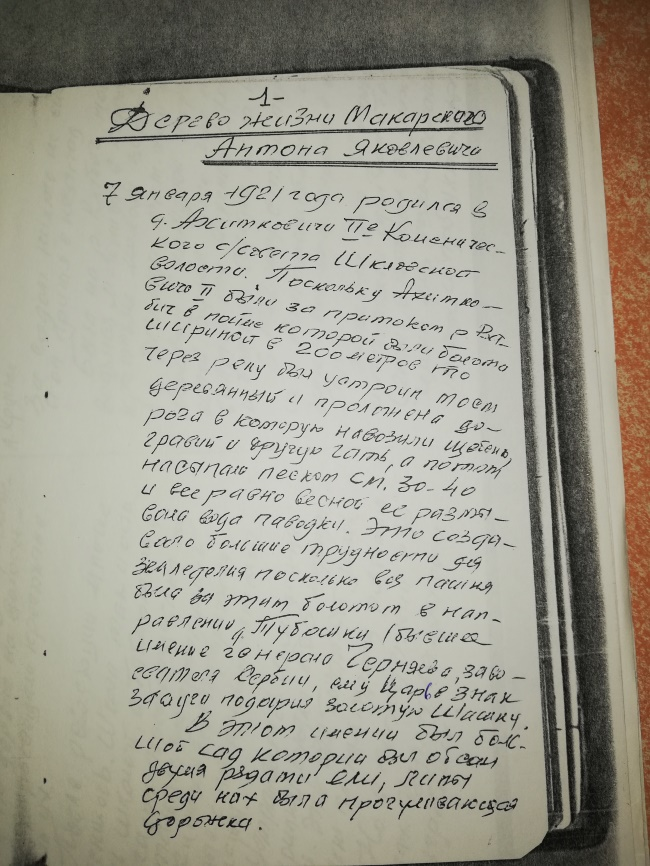 -1-
Дерево жизни Макарского
Антона Яковлевича
7 января 1921 года родился в
д. Ахимковичи II е Каменичес-
кого с/совета Шкловской
волости. Поскольку Ахимко-
вичи II были за притоком р.
бич в пойме которой были болота
шириной в 200 метров то
через реку был устроин мост
деревянный и проложена до-
рога в которую навозили щебень,
гравий и другую гать, а потом
насыпали песком см. 30-40
и все равно весной ее размы-
вала вода паводки. Это созда-
вало большие трудности для
земледелия поскольку вся пашня
была за этим болотом в нап-
равлении д. Тубошки (бывшее
имение генерала Черняева, заво-
евателя Сербии, ему Царь в знак
заслуги подарил золотую шашку.
В этом имении был боль-
шой сад который был обсан
двумя рядами ели, липы
среди них была прогуливающая
дорожка.